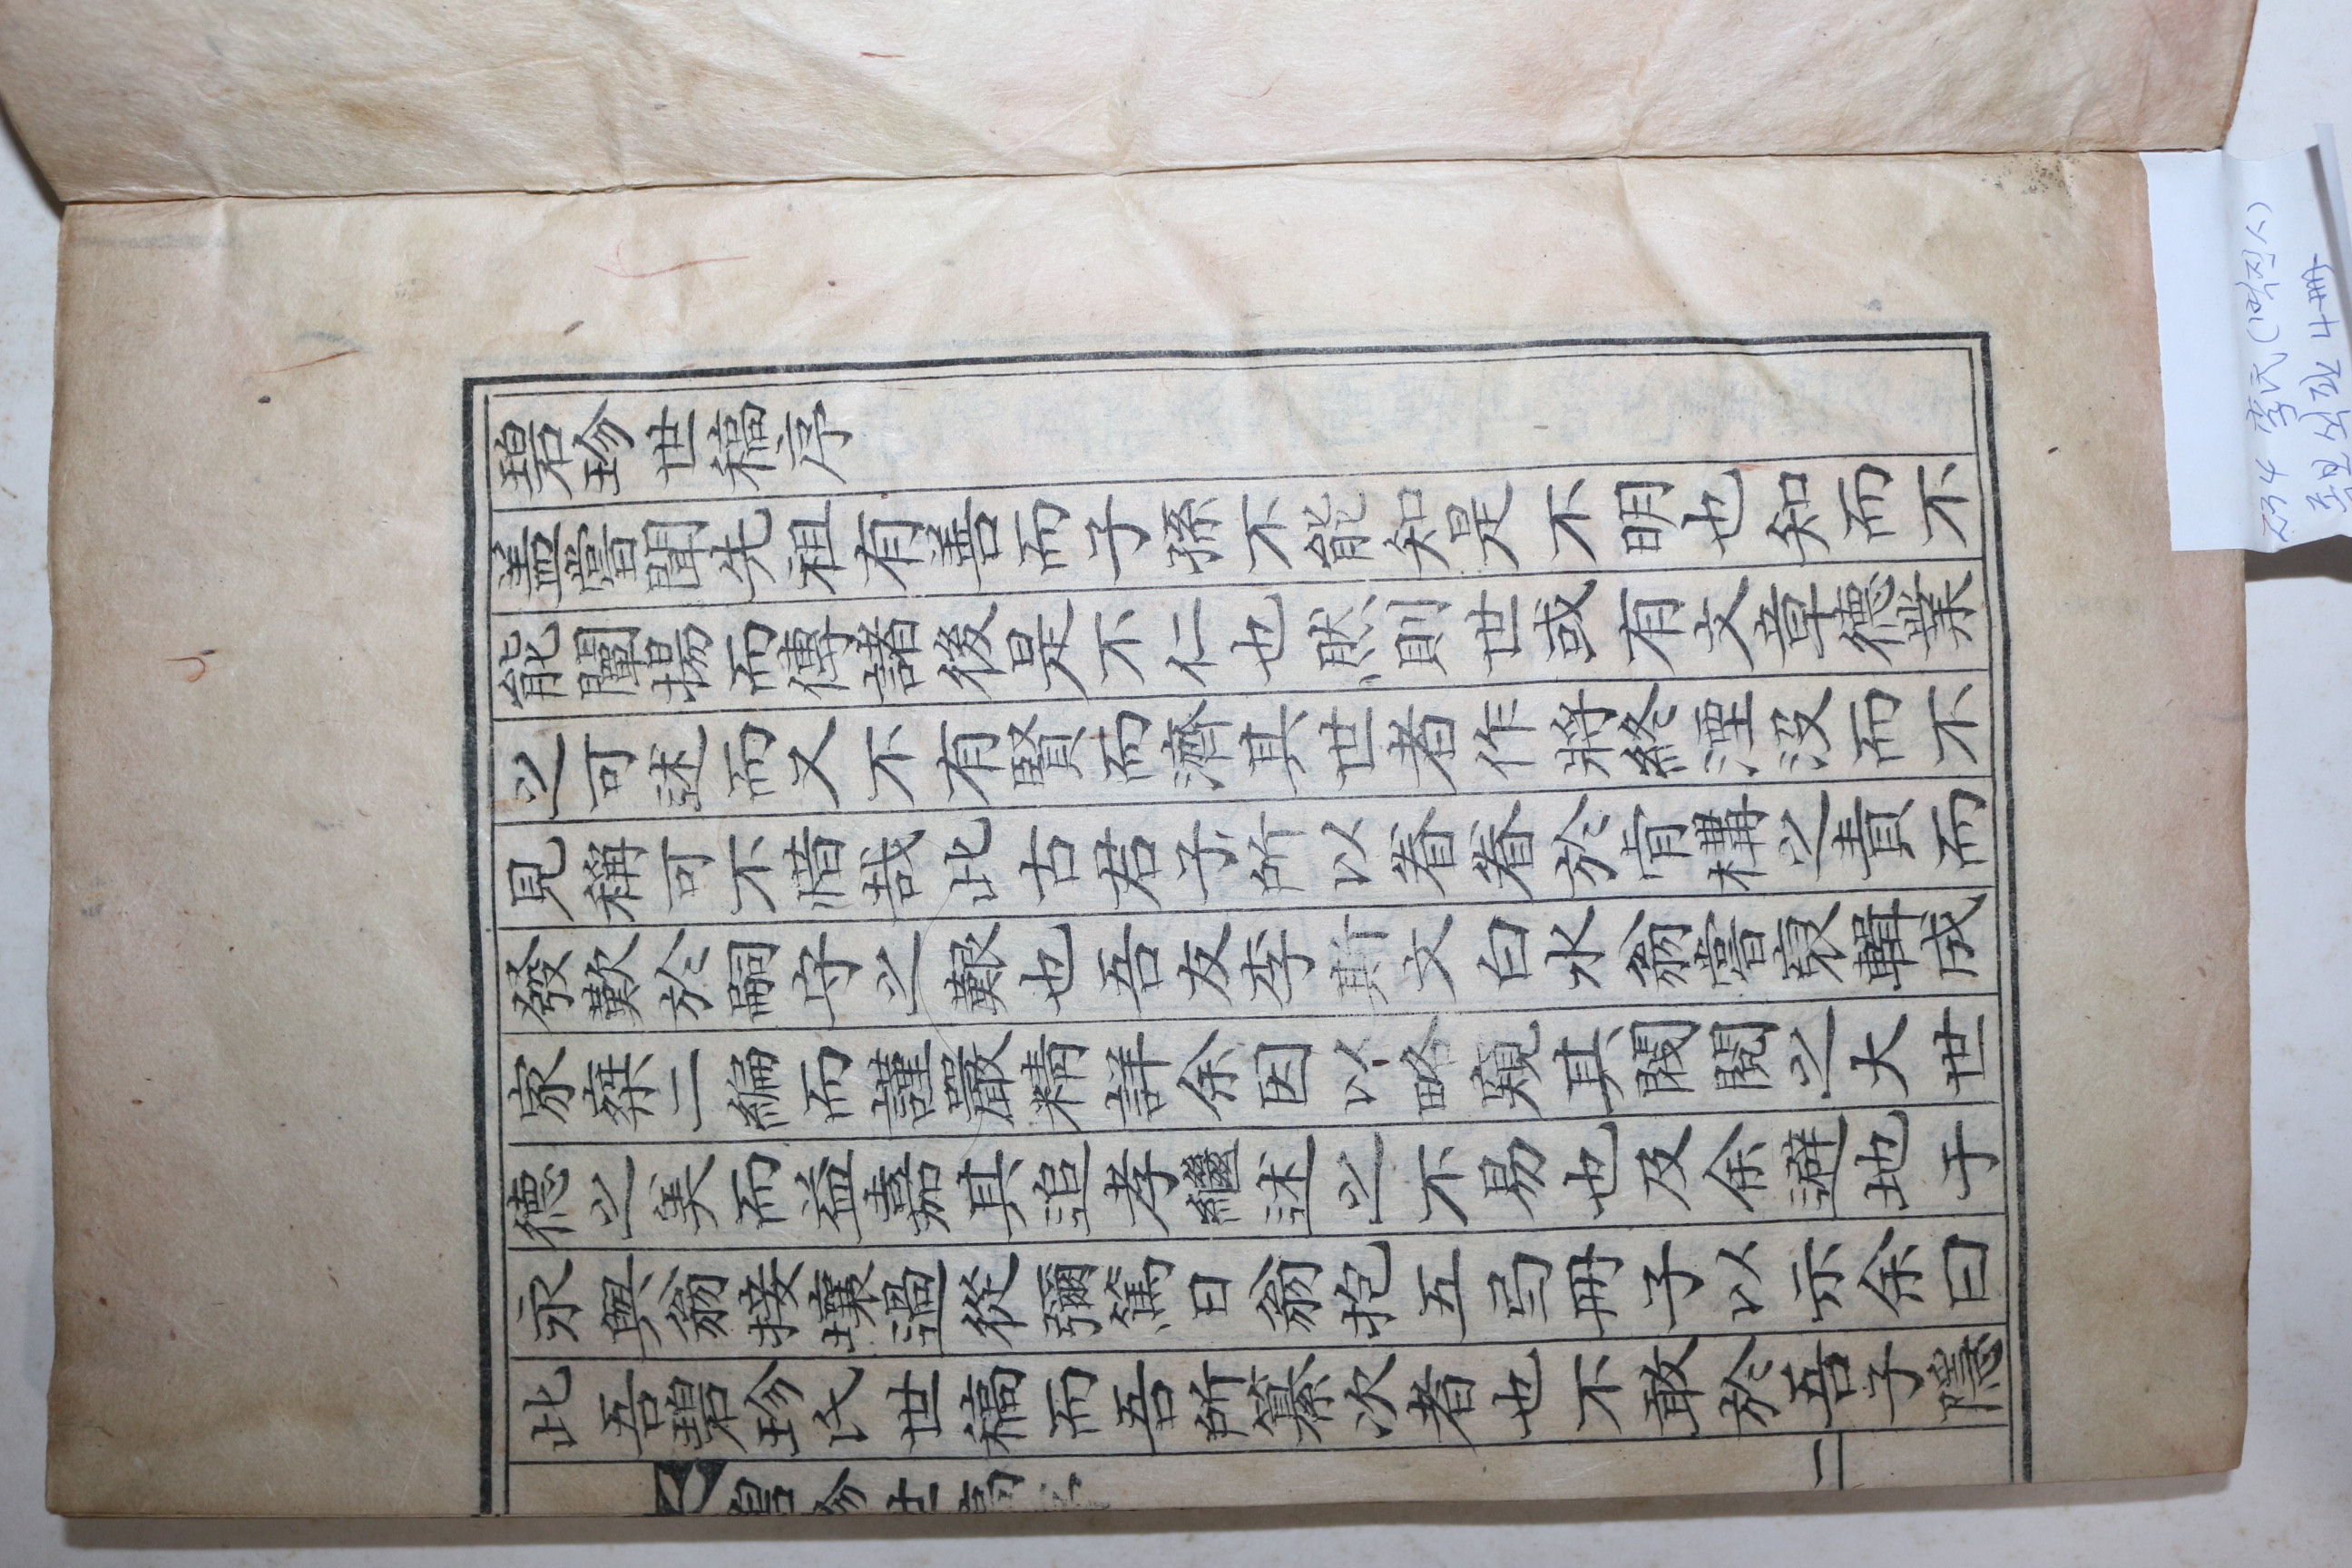 碧珍世稿序
盖嘗聞先祖有善而子孫不能知是不明也知而不
能闡揚而傳諸後是不仁也然則世或有文章德業
之可述而又不有賢而濟其世者作將終湮没而不
見稱可不惜哉此古君子所以眷眷於肯構之責而
發歎於嗣守之艱也吾友李斯文白水翁嘗裒輯成
家椉二編而謹嚴精詳余因以略窺其閥閱之大世
德之美而益嘉其追孝繼述之不易也及余避地于
永與翁接壤過從彌篤日翁抱五弓冊子以示余曰
此吾碧珍氏世稿而吾所纂次者也不敢於吾子隱
碧珍世稿序 二
李氏(벽진시)
족보 석판 4冊